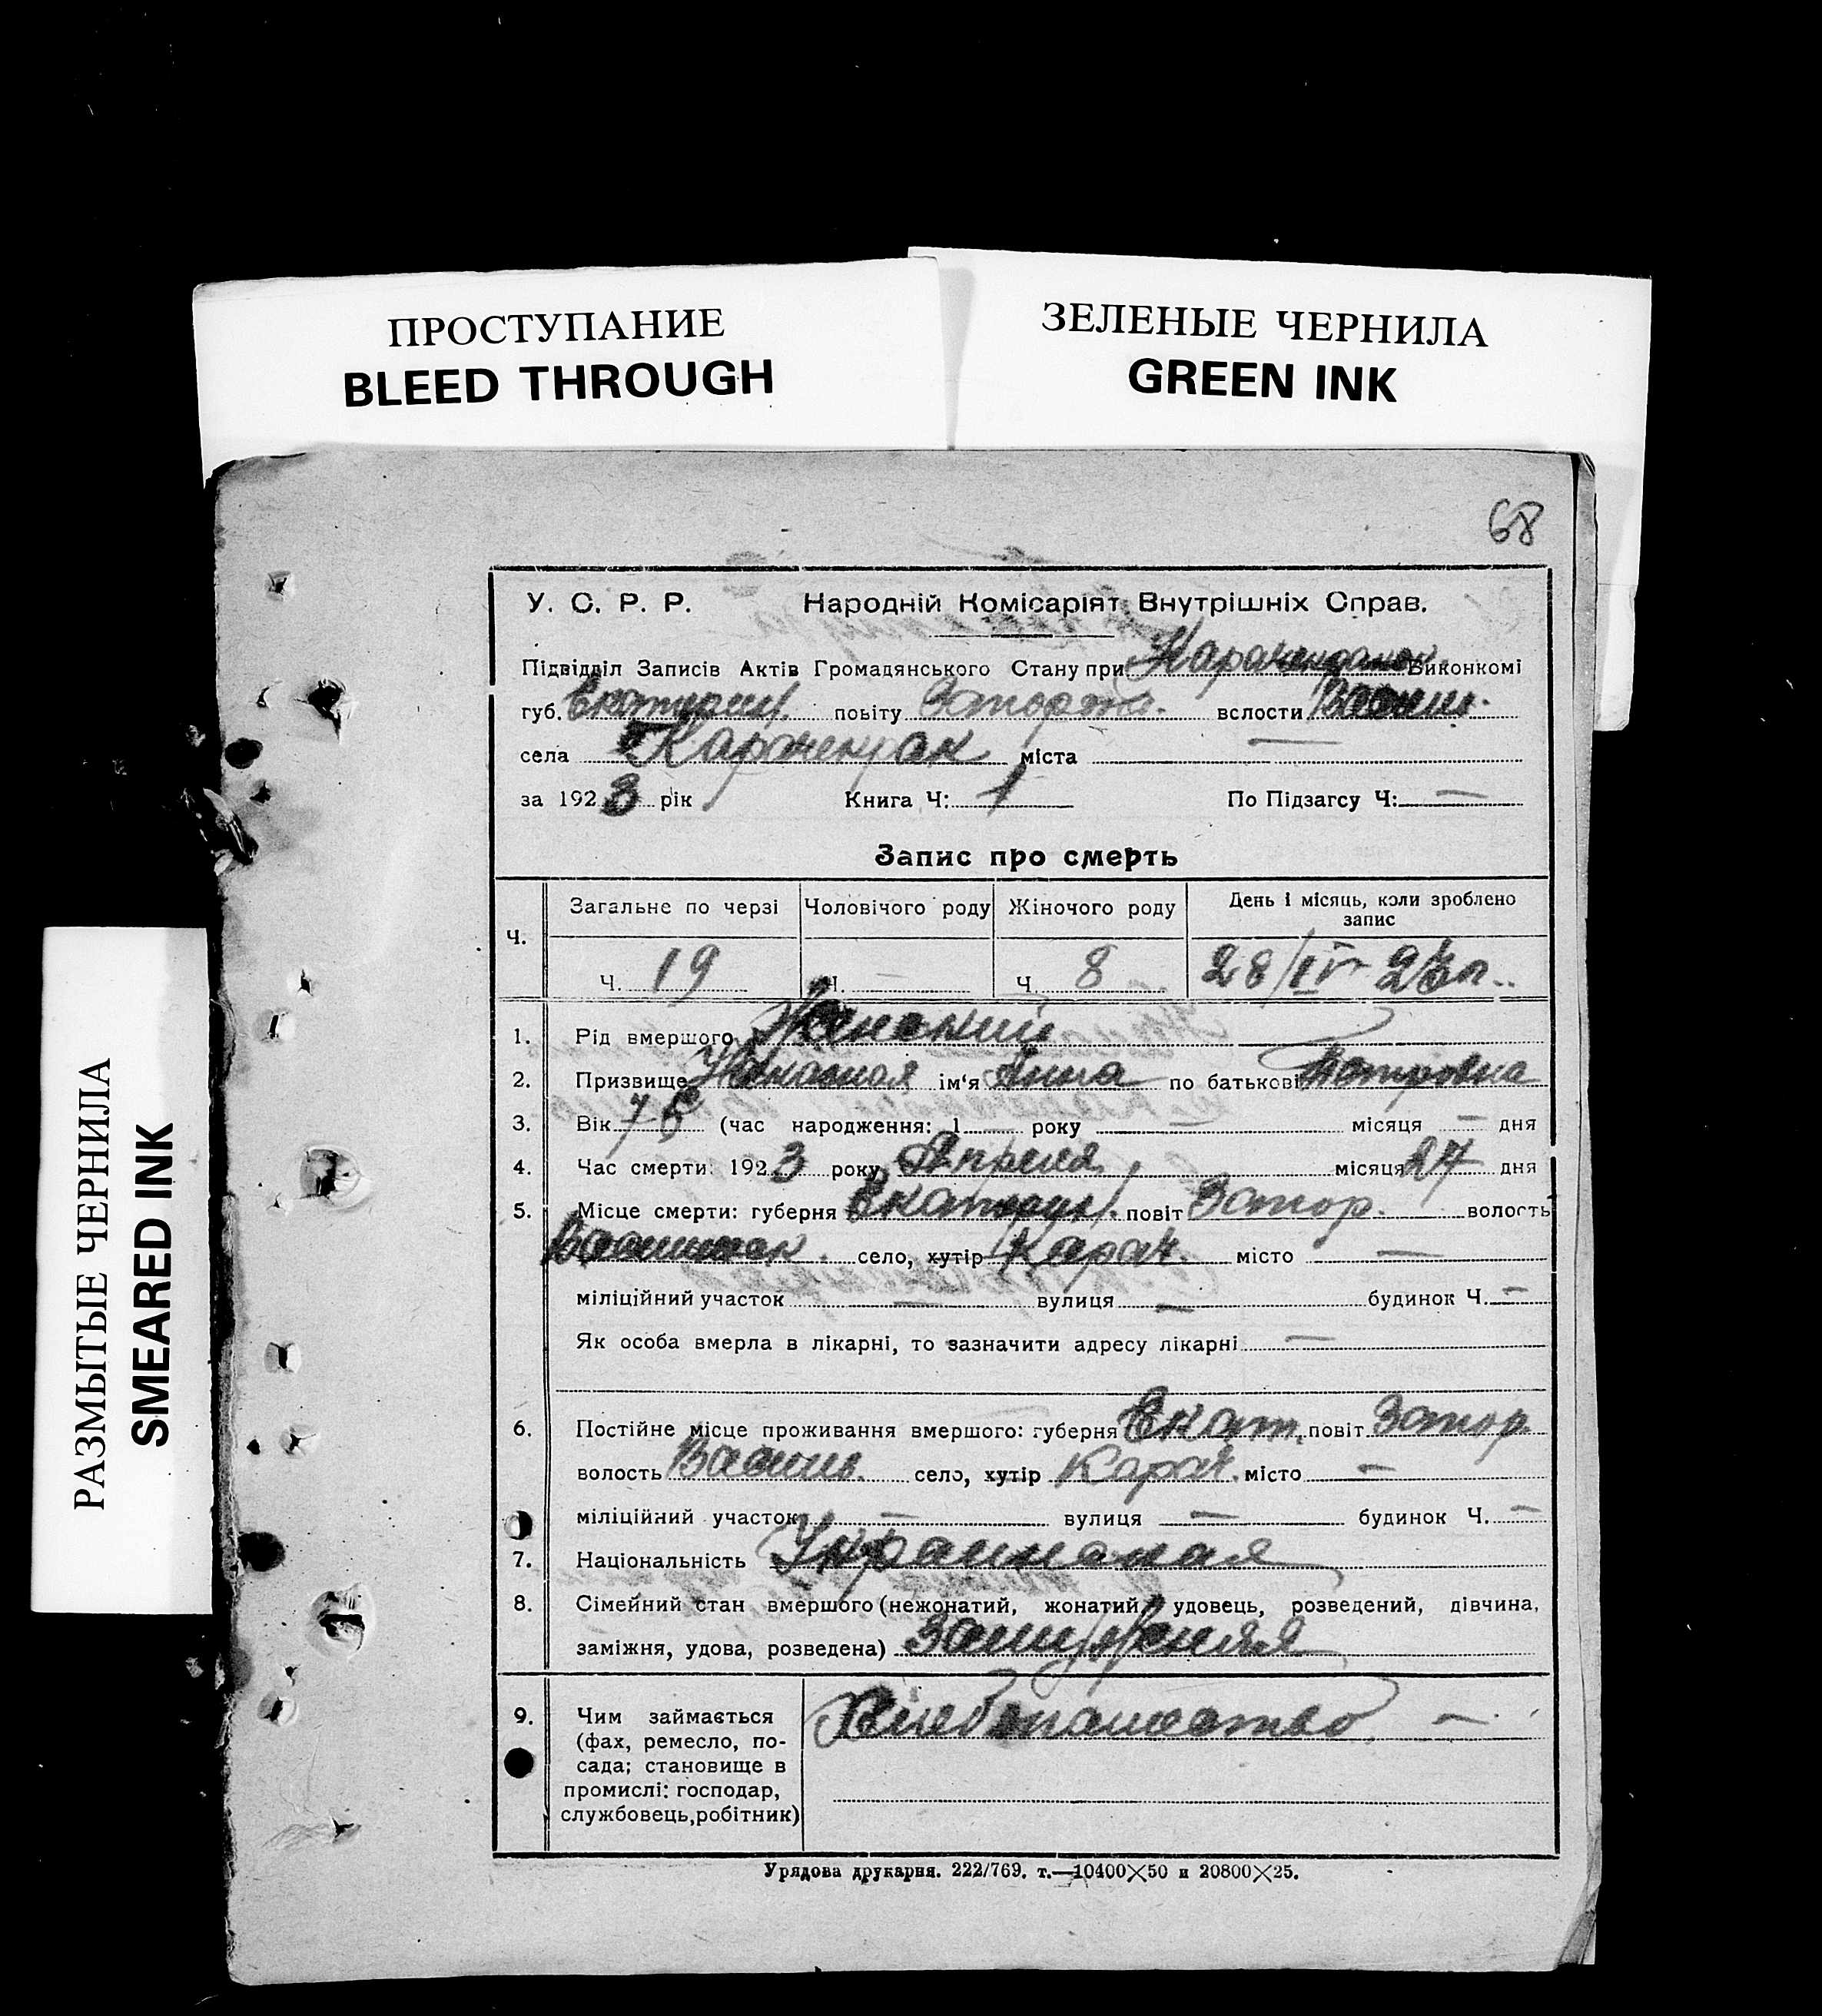 ПРОСТУПАНИЕ
BLEED THROUGH
ЗЕЛЕНЫЕ ЧЕРНИЛА
GREEN INK
РАЗМЫТЫЕ ЧЕРНИЛА
SMEARED INK
68
У. С. Р. Р. Народній Комісаріят Внутрішніх Справ.
Підвідділ Записів Актів Громадянського Стану при Виконкомі
губ. Екатерин. повіту Запорож. волости Васил.
села Карачекрак міста —
за 1923 рік Книга Ч: 1 По Підзагсу Ч: —
Запис про смерть
Ч. Загальне по черзі Чоловічого роду Жіночого роду День і місяць, коли зроблено запис
Ч. 19 Ч. — Ч. 8 28/IV 23 г.
1. Рід вмершого Женский
2. Призвище ім‘я Анна по батькові Петровна
3. Вік 75 (час народження: 1 року місяця — дня
4. Час смерти: 1923 року Апреля місяця 27 дня
5. Місце смерти: губерня Екатерин. повіт Запор. волость
село, хутір Карач. місто —
міліційний участок — вулиця — будинок Ч. —
Як особа вмерла в лікарні, то зазначити адресу лікарні —
6. Постійне місце проживання вмершого: губерня Екат. повіт Запор.
волость Васил. село, хутір Карач. місто —
міліційний участок — вулиця — будинок Ч. —
7. Національність Украинская
8. Сімейний стан вмершого (нежонатий, жонатий, удовець, розведений, дівчина,
заміжня, удова, розведена) Замужняя
9. Чим займається Хлебопашество —
(фах, ремесло, по-
сада; становище в
промислі: господар,
службовець, робітник)
Урядова друкарня. 222/769. т.—10400×50 и 20800×25.